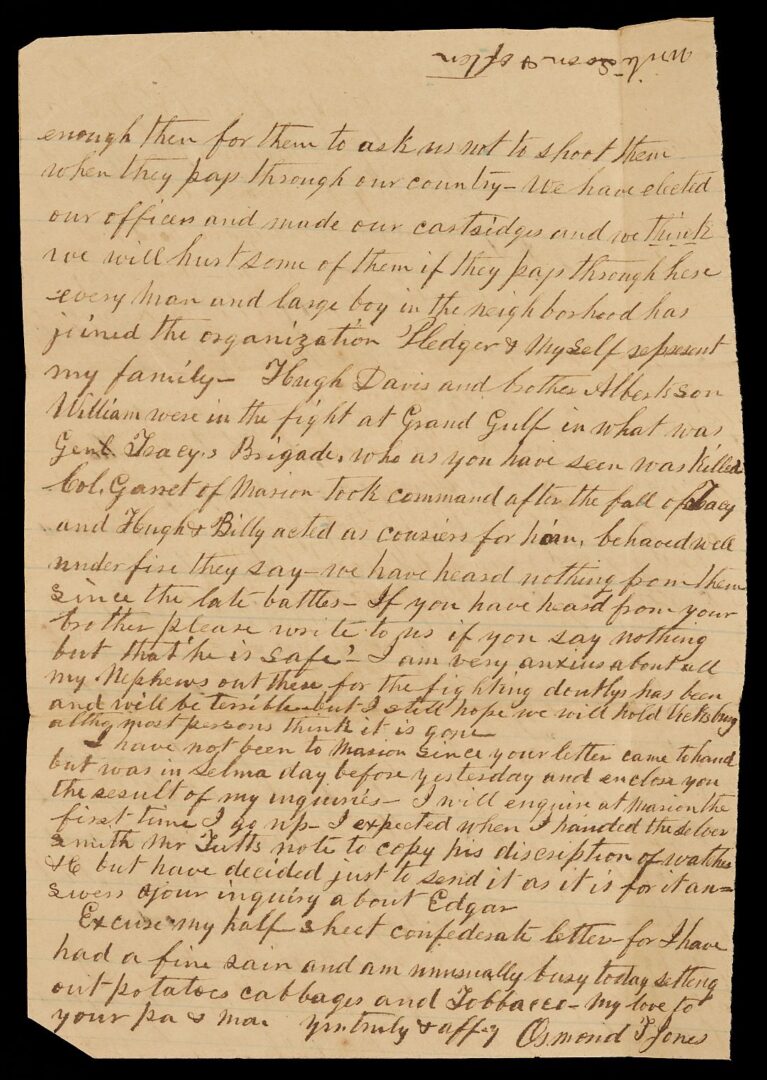 Write soon & often
enough then for them to ask us not to shoot them
when they pass through our country - We have elected
our officers and made our cartridges and we think
we will hurt some of them if they pass through here
every man and large boy in the neighborhood has
joined the organization Fledger & Myself represent
my family - Hugh Davis and brother Alberts son
William were in the fight at Grand Gulf in what was
Genl. Tracy,s Brigade, who as you have seen was killed
Col. Garret of Marion took command after the fall of Tracy
and Hugh & Billy acted as couriers for him, behaved well
under fire they say - we have heard nothing from them
since the late battles - If you have heard from your
brother please write to us if you say nothing
but that "he is safe" - I am very anxius about all
my Nephews out there for the fighting doutlys has been
and will be terrible but I still hope we will hold Vicksburg
altho most persons think it is gone
I have not been to Marion since your letter came to hand
but was in Selma day before yesterday and enclose you
the result of my inquiries - I will enquire at Marion the
first time I go up - I expected when I handed the silver
smith Mr Tutts note to copy his discription of watches
&c but have decided just to send it as it is for it an=
swers your inquiry about Edgar
Excuse my half sheet confederate letter for I have
had a fine rain and am unusually busy today setting
out potatoes cabbages and Tobbacco - My love to
your pa & ma yrs truly & aff-y Osmond T Jones